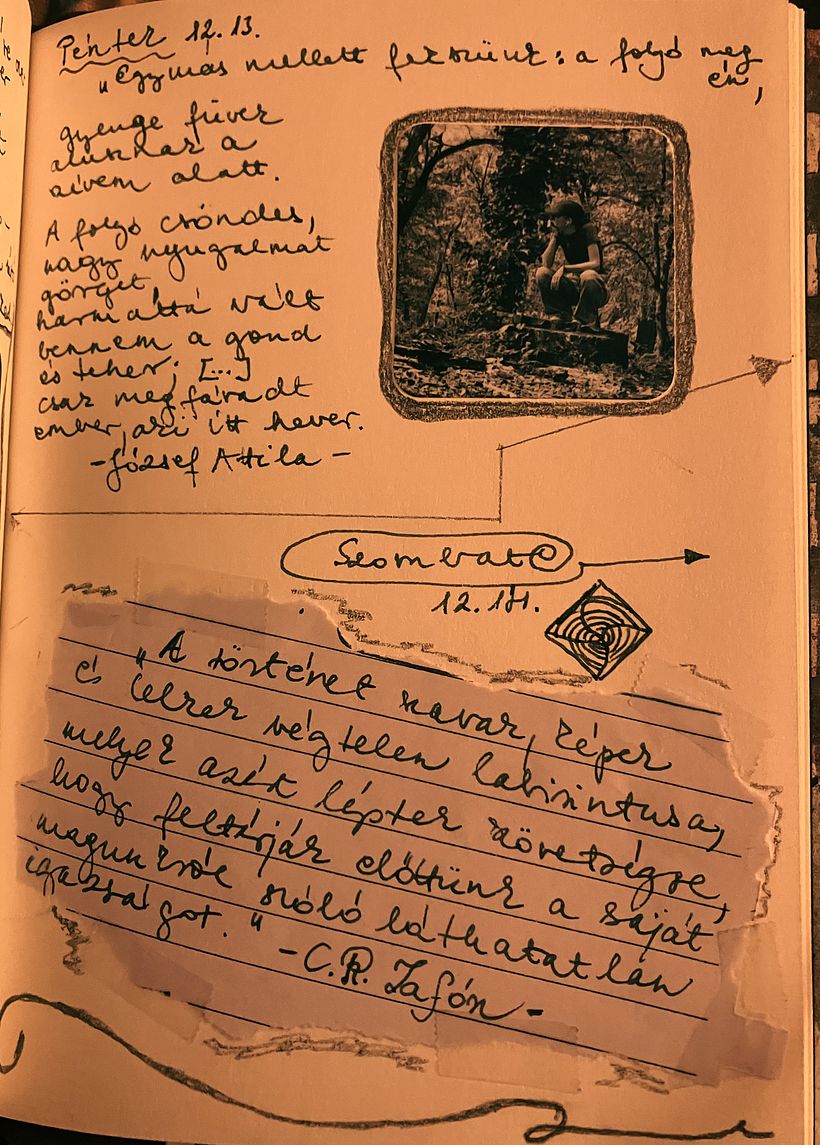 Péntek 12.13.
"Egymás mellett fekszünk: a folyó meg
én,
gyenge füvek
alusznak a
sívem alatt.
A folyó csöndes,
nagy nyugalmat
görget,
harmattá vált
bennem a gond
és teher; [...]
csak megfáradt
ember, aki itt hever.
-József Attila-
Szombat
12.14.
"A történet szavak, képek
és lelkek végtelen labirintusa,
melyek azért léptek szövetségre,
hogy feltárják előttünk a saját
magunkról szóló láthatatlan
igazságot."
-C.R. Zafón-